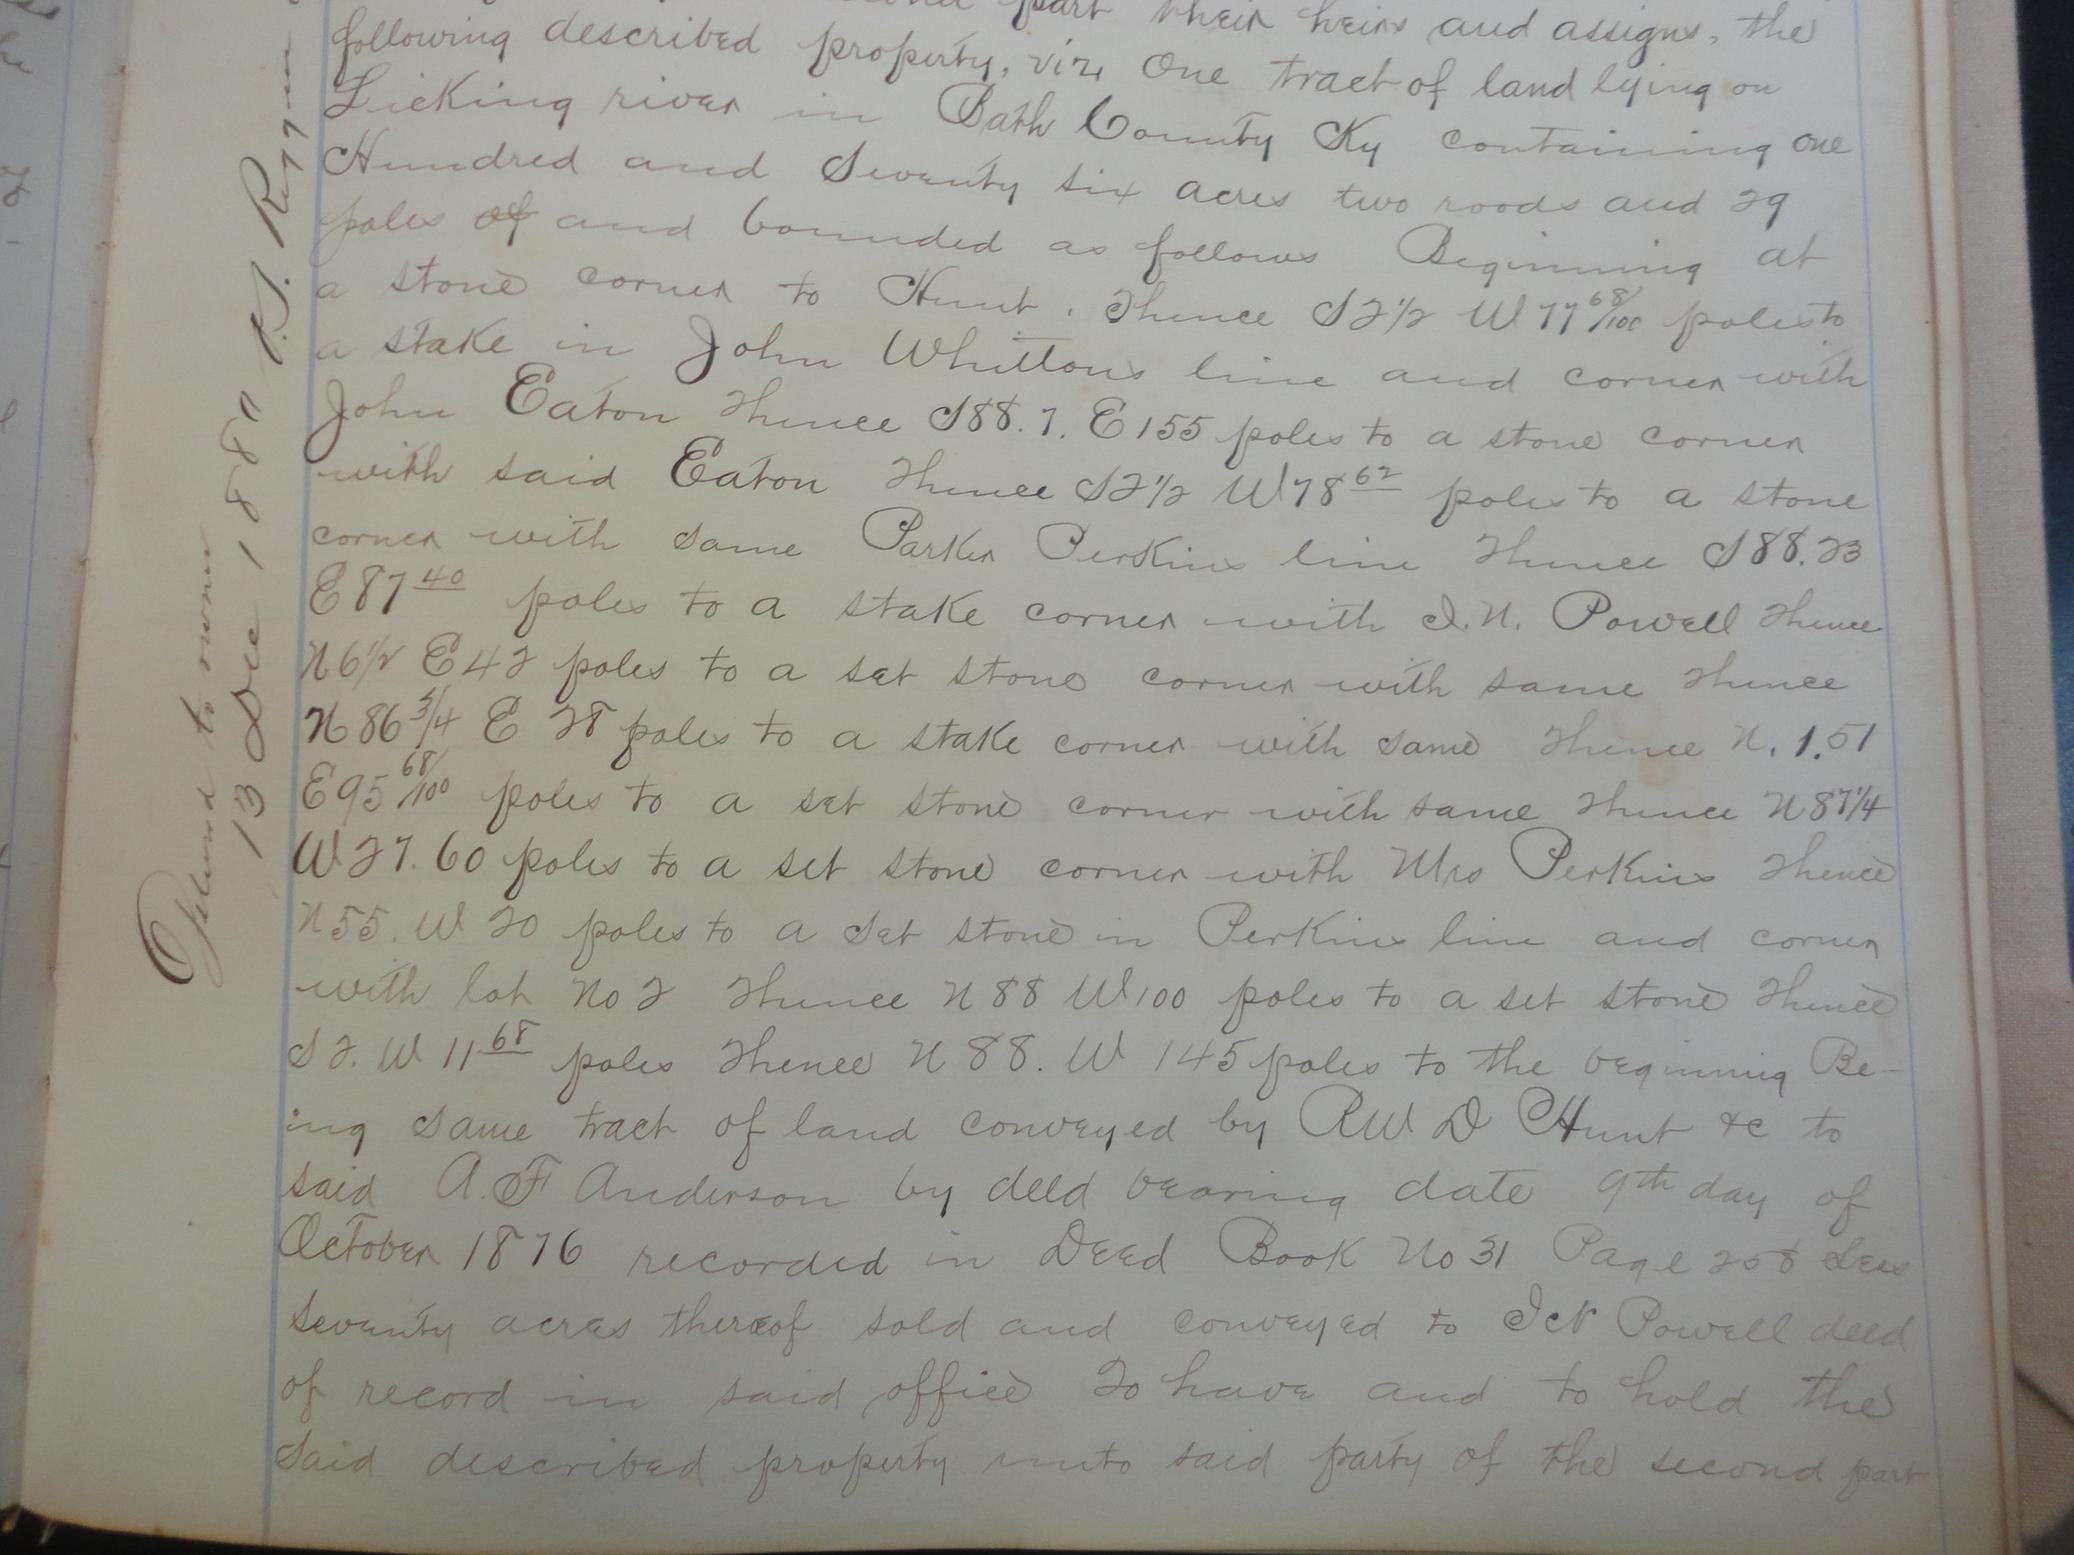 part their heirs and assigns, the
following described property, viz, One tract of land lying on
Licking river in Bath County Ky containing one
Hundred and Seventy six acres two roods and 29
poles of and bounded as follows Beginning at
a stone corner to Hunt. Thence S 2 1/2 W 77 68/100 poles to
a stake in John Whittons line and corner with
John Eaton Thence S 88. 7. E 155 poles to a stone corner
with said Eaton Thence S 2 1/2 W 78 62 poles to a stone
corner with same Parker Perkins line Thence S 88. 23
E 87 40 poles to a stake corner with I. N. Powell Thence
N 6 1/2 E 42 poles to a set stone corner with same Thence
N 86 3/4 E 28 poles to a stake corner with same Thence N. 1. 51
E 95 68/100 poles to a set stone corner with same Thence N 87 1/4
W 27. 60 poles to a set stone corner with Mrs Perkins Thence
N 55. W 20 poles to a set stone in Perkins line and corner
with lot No 2 Thence N 88 W 100 poles to a set stone Thence
S 2. W 11 68 poles Thence N 88. W 145 poles to the beginning Be-
ing same tract of land conveyed by R W D Hunt &c to
said A. F Anderson by deed bearing date 9th day of
October 1876 recorded in Deed Book No 31 Page 258 Less
seventy acres thereof sold and conveyed to Powell deed
of record in said office To have and to hold the
said described property unto said party of the second part
13 Dec 1880